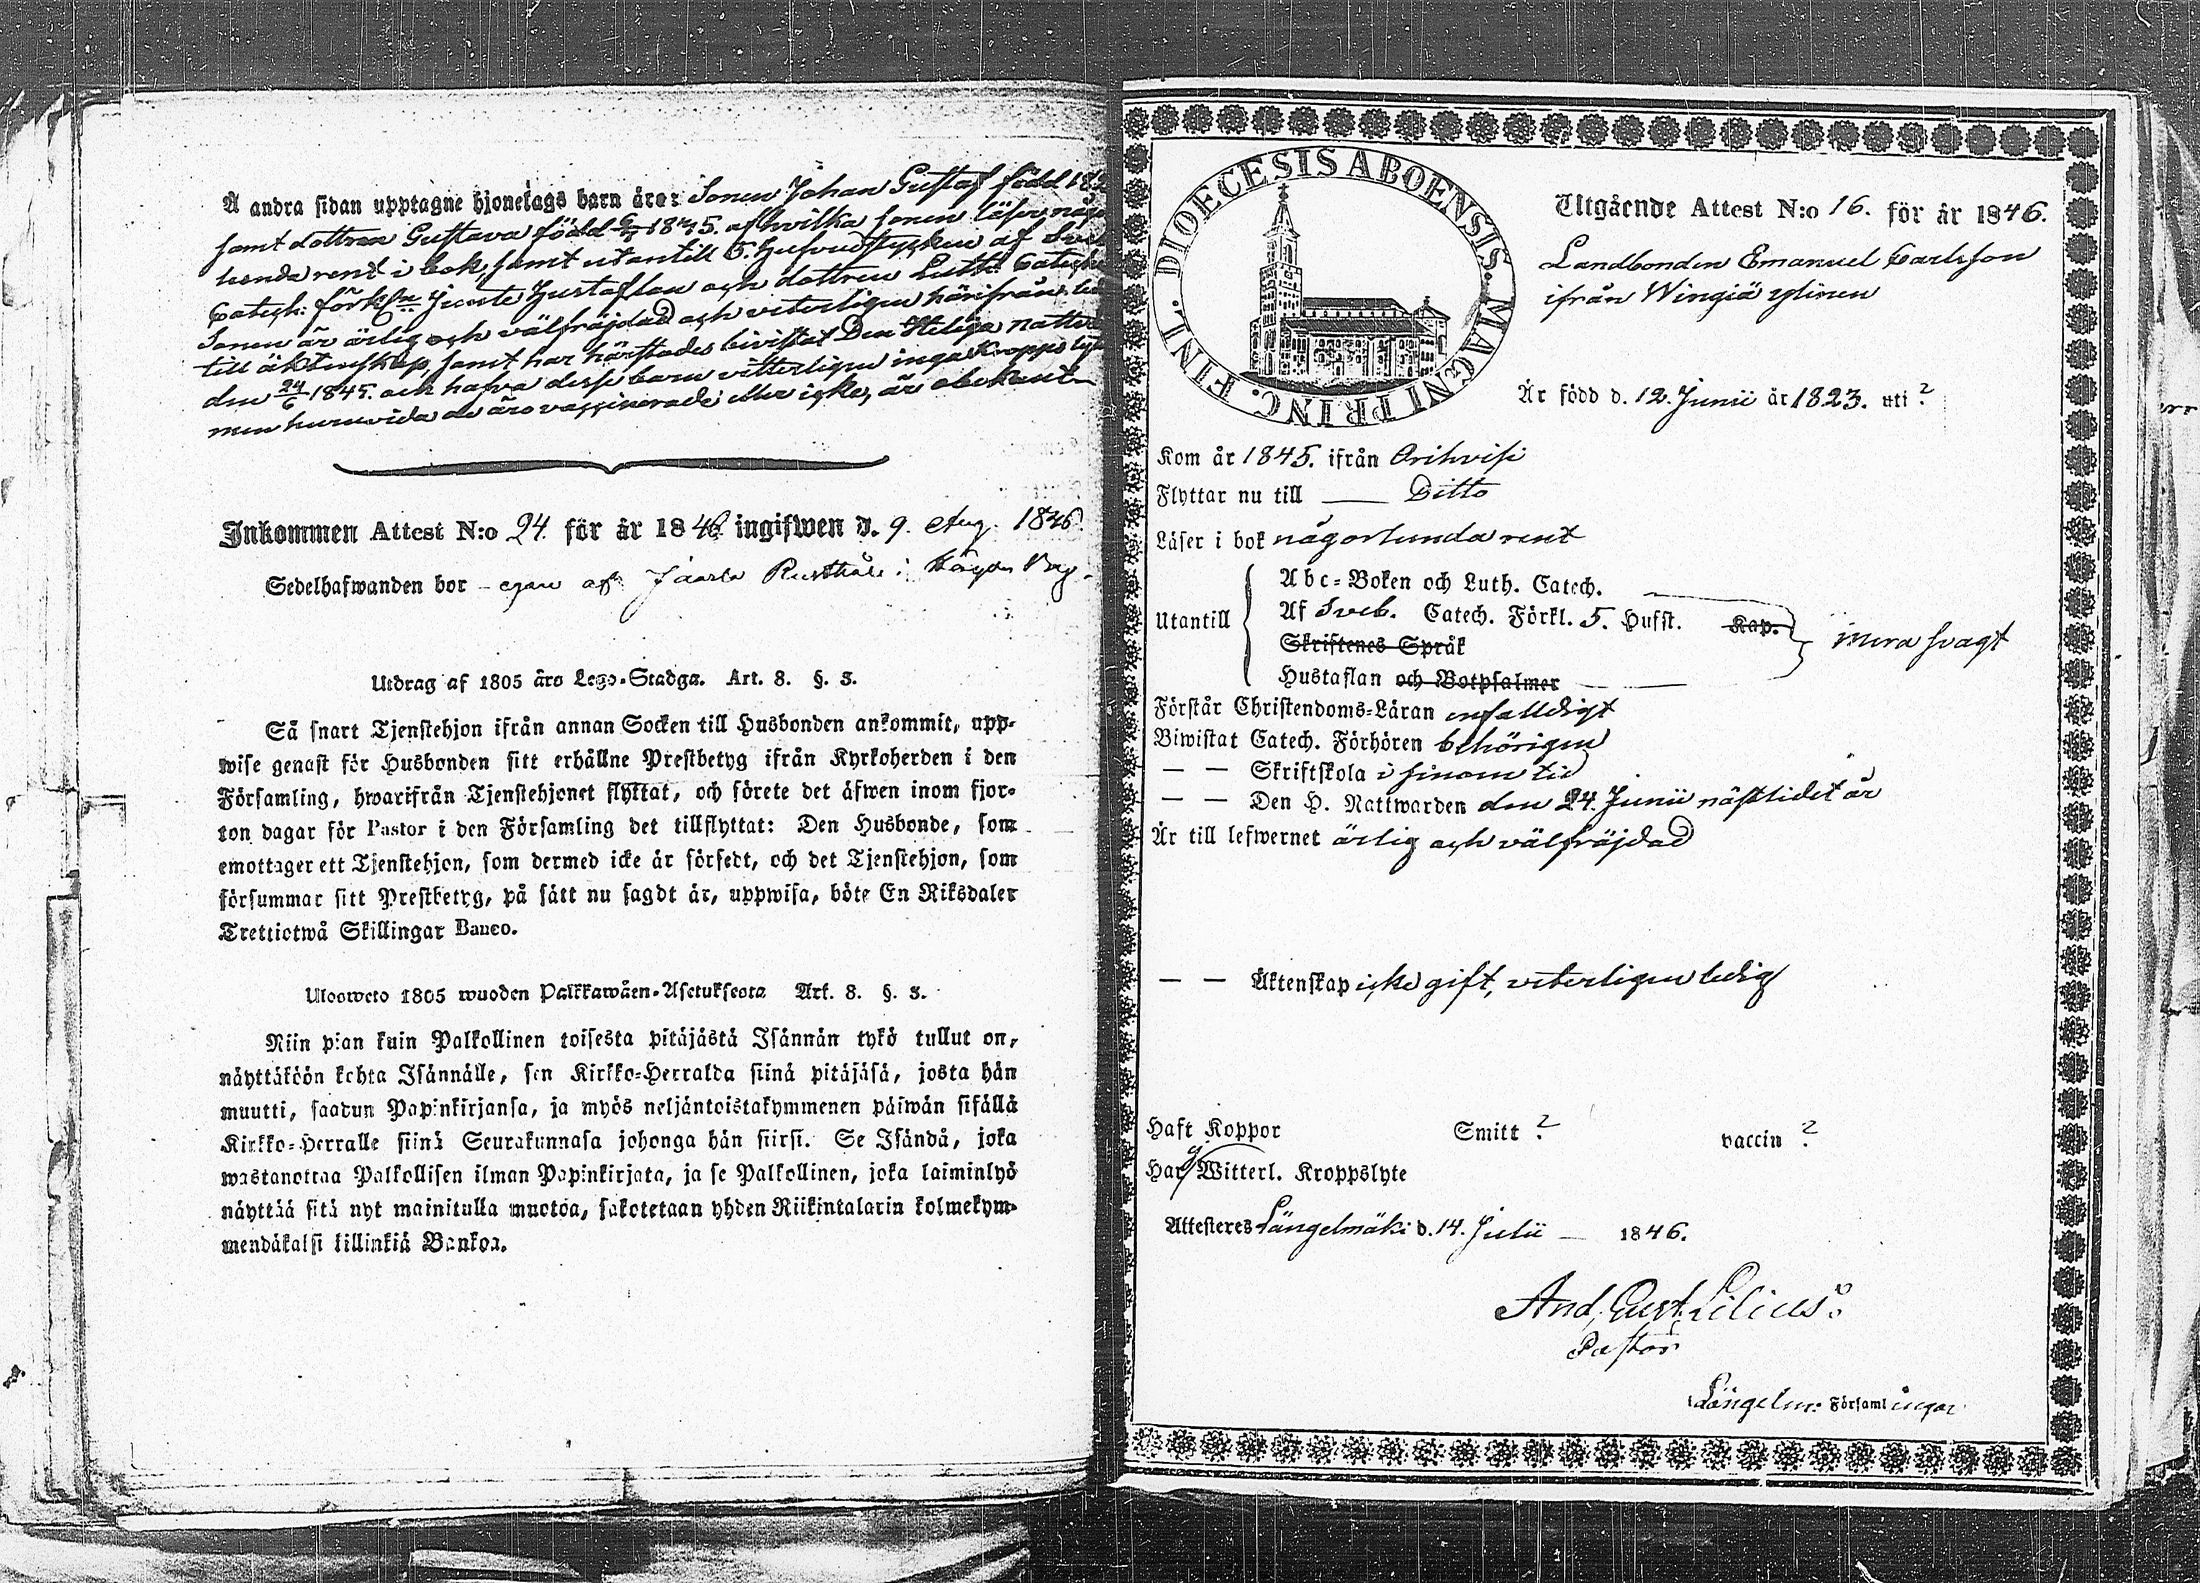 Å andra sidan upptagne hjonelags barn äro: Sonen Johan Gustaf född
samt dottren Gustava född 1845. af hvilka sonen läser
henda rent i bok, samt utantill 5. Hufvudstycken af
Catech: förkl: jemte Hustaflan och dottren Luth:
Sonen är ärlig och välfräjdad och veterligen härifrån
till äktenskap, samt har härstädes bivistat Den Heliga
den 24/6 1845. och hafva desse barn vitterligen inga Kropps
men huruvida de äro vaccinerade eller icke, är obekant
Inkommen Attest N:o 24. för år 1846 ingifwen d. 9. Aug. 1846.
Sedelhafwanden bor
Utdrag af 1805 års Lego-Stadga. Art. 8. §. 3.
Så snart Tjenstehjon ifrån annan Socken till Husbonden ankommit, upp-
wise genast för Husbonden sitt erhållne Prestbetyg ifrån Kyrkoherden i den
Församling, hwarifrån Tjenstehjonet flyttat, och förete det äfwen inom fjor-
ton dagar för Pastor i den Församling det tillflyttat: Den Husbonde, som
emottager ett Tjenstehjon, som dermed icke är försedt, och det Tjenstehjon, som
försummar sitt Prestbetyg, på sätt nu sagdt är, uppwisa, böte En Riksdaler
Trettiotwå Skillingar Banco.
Ulosweto 1805 wuoden Palkkawäen-Asetuksesta Art. 8. §. 3.
Niin pian kuin Palkollinen toisesta pitäjästä Isännän tykö tullut on,
näyttäköön kohta Isännälle, sen Kirkko-Herralda siinä pitäjäsä, josta hän
muutti, saadun Papinkirjansa, ja myös neljäntoistakymmenen päiwän sisällä
Kirkko-Herralle siinä Seurakunnasa johonga hän siirsi. Se Isändä, joka
wastanottaa Palkollisen ilman Papinkirjata, ja se Palkollinen, joka laiminlyö
näyttää sitä nyt mainitulla muotoa, sakotetaan yhden Riikintalarin kolmekym-
mendäkaksi killinkiä Bankoa.
DIOECESIS ABOENSIS. MAGNI PRINC. FINL.
Utgående Attest N:o 16. för år 1846.
Landbonden Emanuel Carlsson
ifrån Wingiä ylinen
Är född d. 12. Junii år 1823. uti ?
Kom år 1845. ifrån Orihvisi
Flyttar nu till — Ditto
Läser i bok någorlunda rent
Abc-Boken och Luth. Catech.
Utantill Af Sveb. Catech. Förkl. 5. Hufst. Kap. mera svagt
Skriftenes Språk
Hustaflan och Botpsalmer
Förstår Christendoms-Läran enfalldigt
Biwistat Catech. Förhören behörigen
— — Skriftskola i sinom tid
— — Den H. Nattwarden den 24. Junii nästlidet år
Är till lefwernet ärlig och välfräjdad
— — Äktenskap icke gift, veterligen ledig
Haft Koppor Smitt ? vaccin ?
Har ej Witterl. Kroppslyte
Attesteres Längelmäki d. 14. Julii — 1846.
And. Gust. Lilius.
Pastor
Längelm: Församlingar